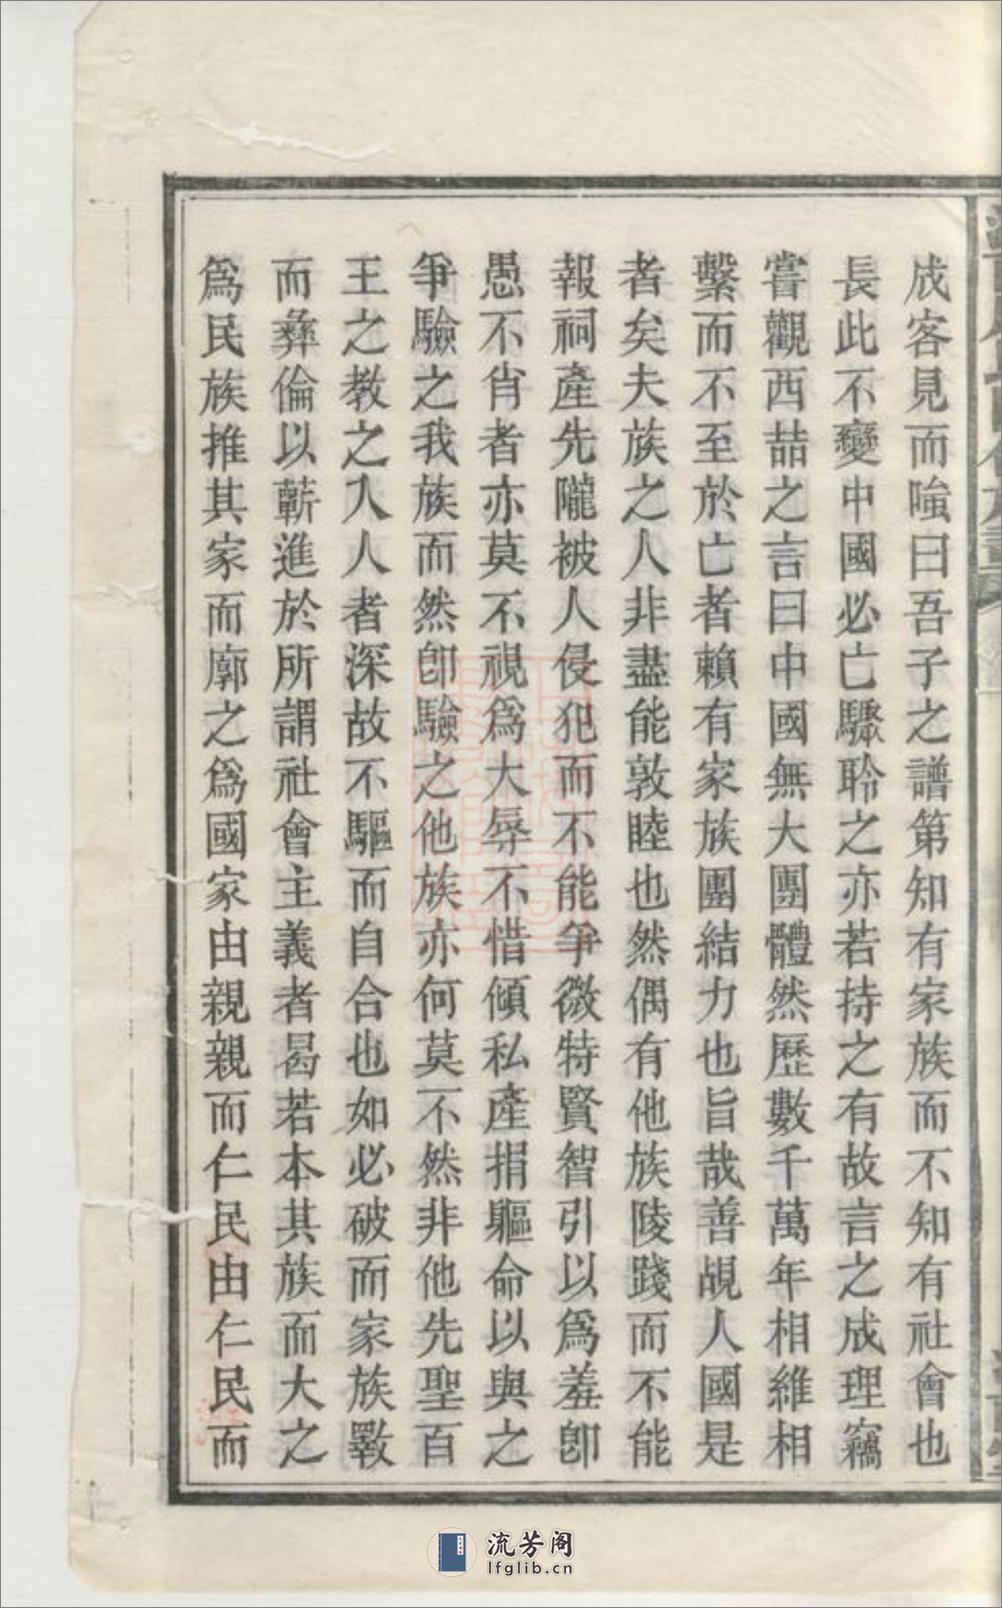 成客見而嗤曰吾子之譜第知有家族而不知有社會也
長此不變中國必亡驟聆之亦若持之有故言之成理竊
嘗觀西喆之言曰中國無大團體然歷數千萬年相維相
繫而不至於亡者賴有家族團結力也旨哉善覘人國是
者矣夫族之人非盡能敦睦也然偶有他族陵踐而不能
報祠產先隴被人侵犯而不能爭微特賢智引以爲羞卽
愚不肖者亦莫不視爲大辱不惜傾私產捐軀命以與之
爭驗之我族而然卽驗之他族亦何莫不然非他先聖百
王之教之入人者深故不驅而自合也如必破而家族斁
而彝倫以蘄進於所謂社會主義者曷若本其族而大之
爲民族推其家而廓之爲國家由親親而仁民由仁民而
流芳阁
lfglib.cn